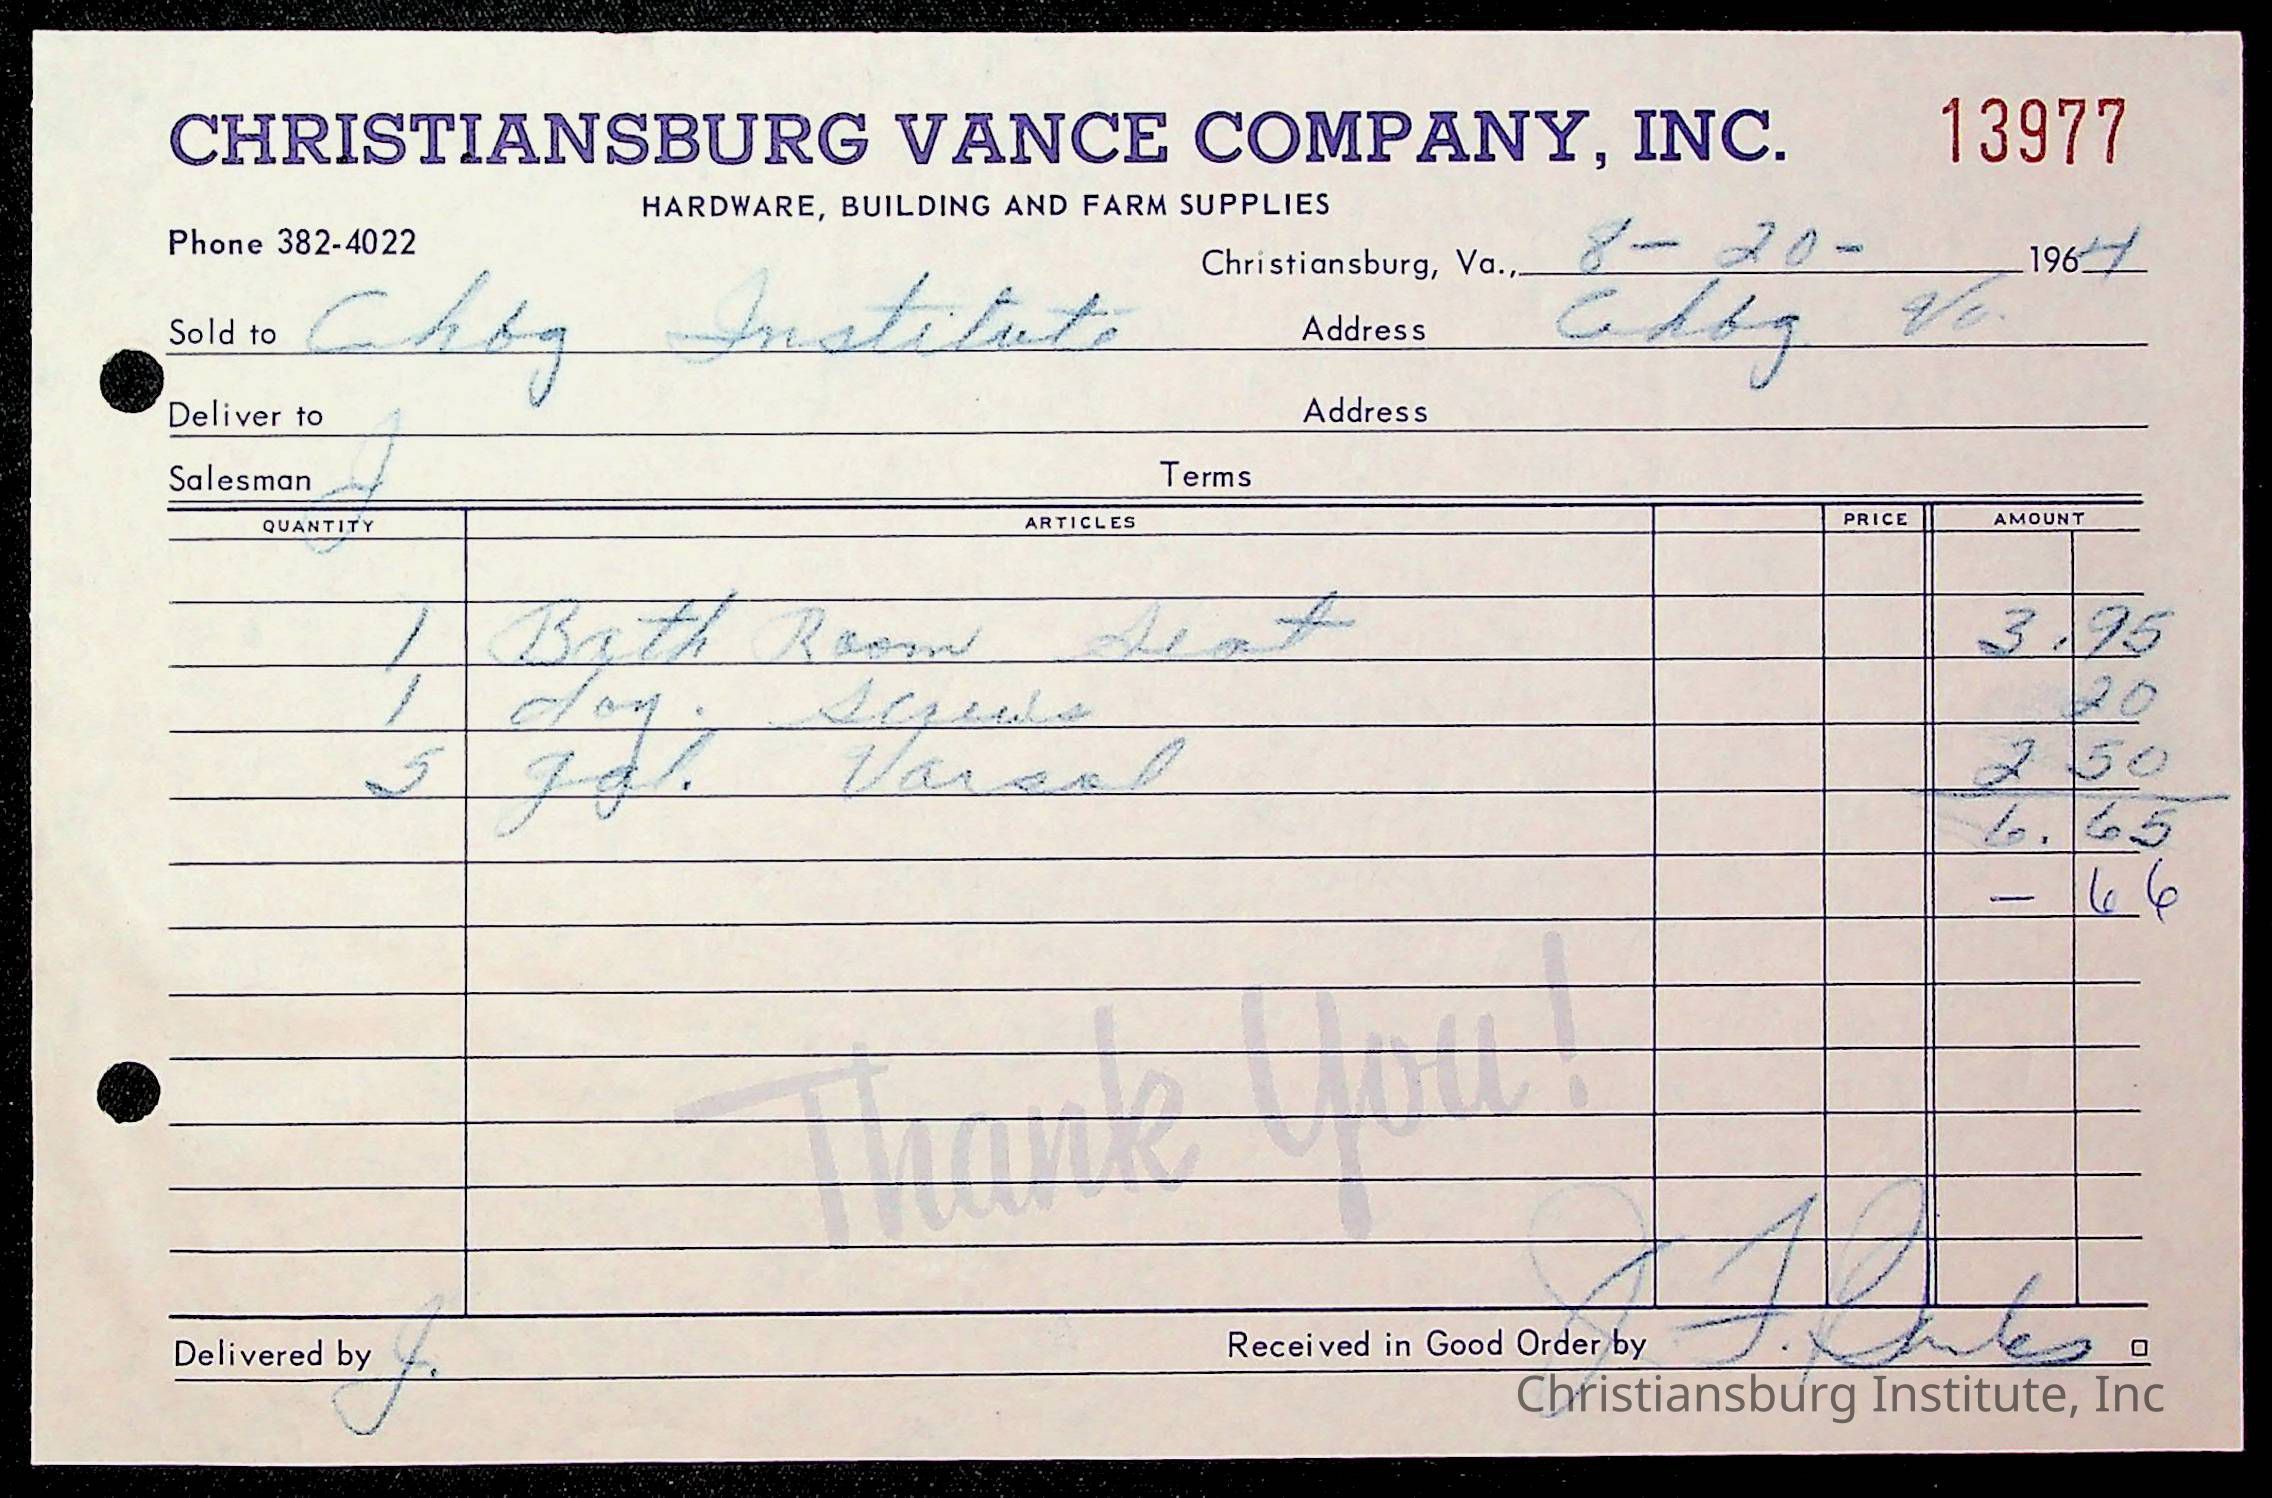 CHRISTIANSBURG VANCE COMPANY, INC. 13977
HARDWARE, BUILDING AND FARM SUPPLIES
Phone 382-4022
Christiansburg, Va., 8-20- 1964
Sold to Chbg Institute Address Chbg Va.
Deliver to Address
Salesman J Terms
QUANTITY ARTICLES PRICE AMOUNT
1 Bath Room Seat 3.95
1 doz. screws 20
5 gal. Varsol 2 50
6.65
- 66
Thank You!
Delivered by J. Received in Good Order by J. F.
Christiansburg Institute, Inc